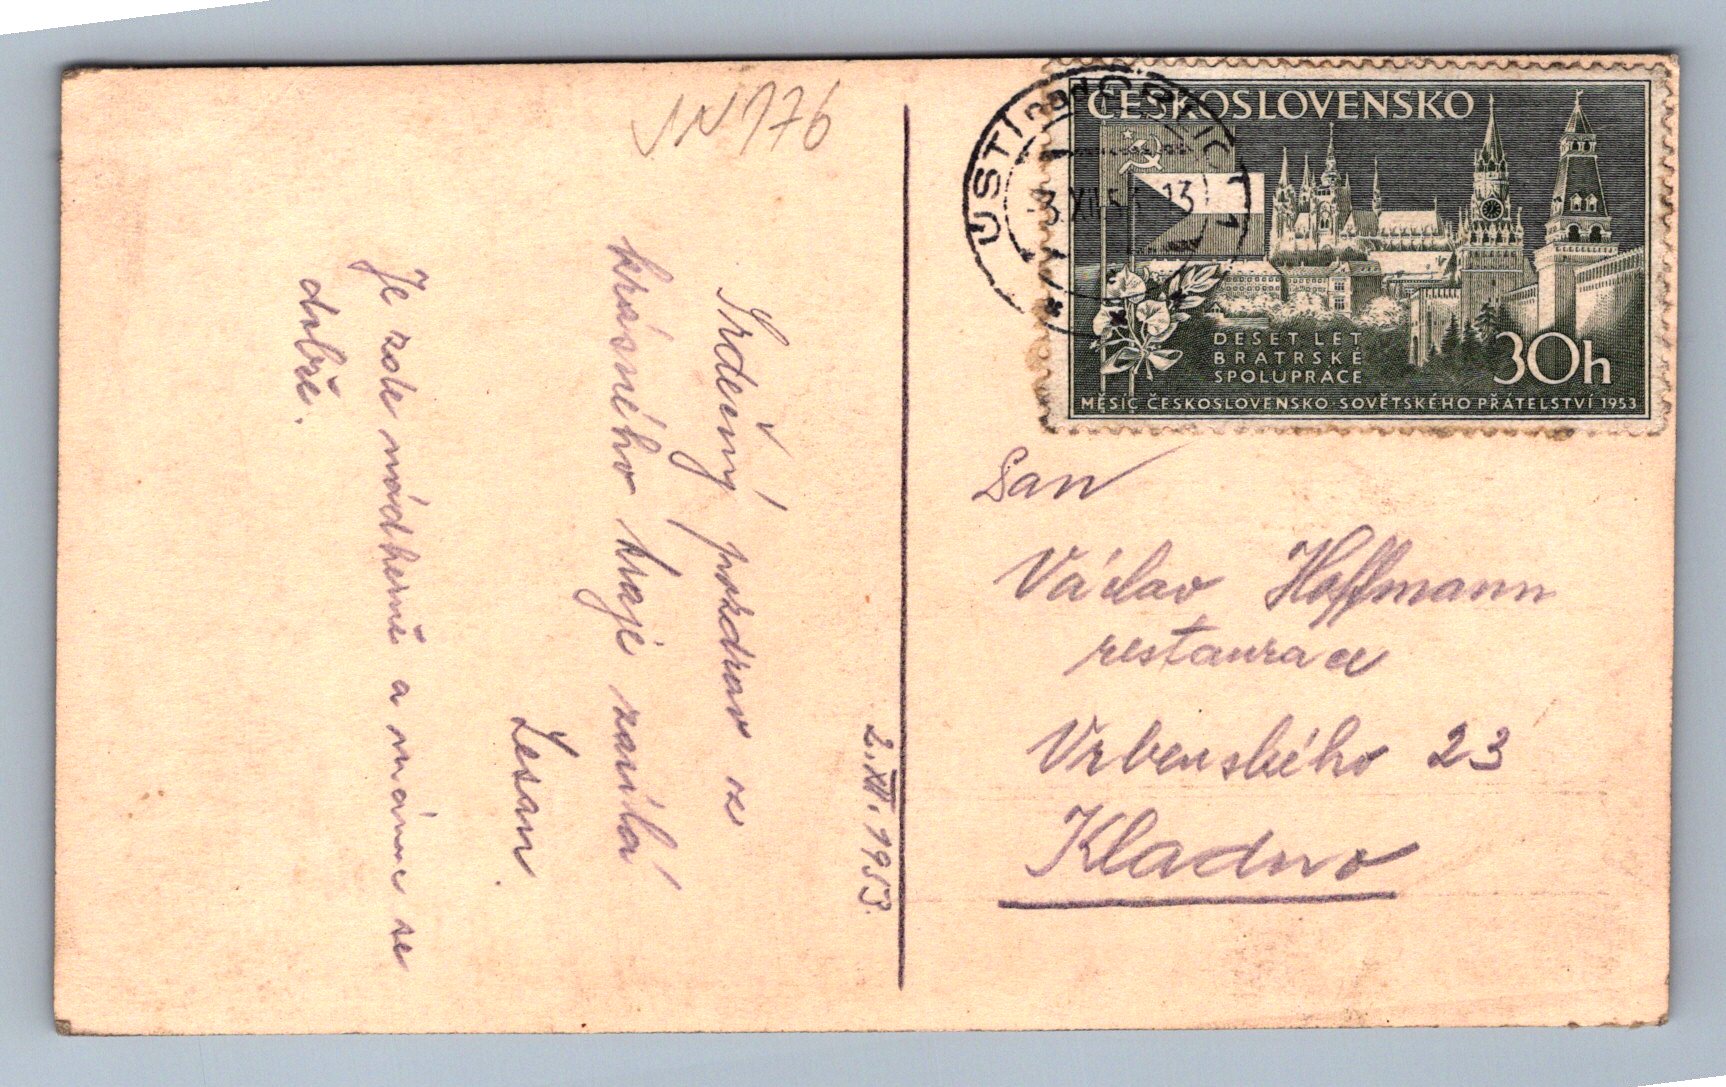 JN 176
ČESKOSLOVENSKO
DESET LET
BRATRSKÉ
SPOLUPRÁCE
30h
MĚSÍC ČESKOSLOVENSKO-SOVĚTSKÉHO PŘÁTELSTVÍ 1953
ÚSTÍ nad ORLICÍ 1
-3.XII.53-13
2.XII.1953.
Srdečný pozdrav z
krásného kraje zasílá
Je zde nádherně a máme se
dobře.
Pan
Václav Hoffmann
restaurace
Vrbenského 23
Kladno